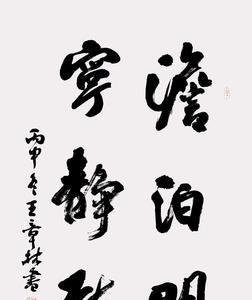 澹泊明
寧靜致
丙申冬王章林書